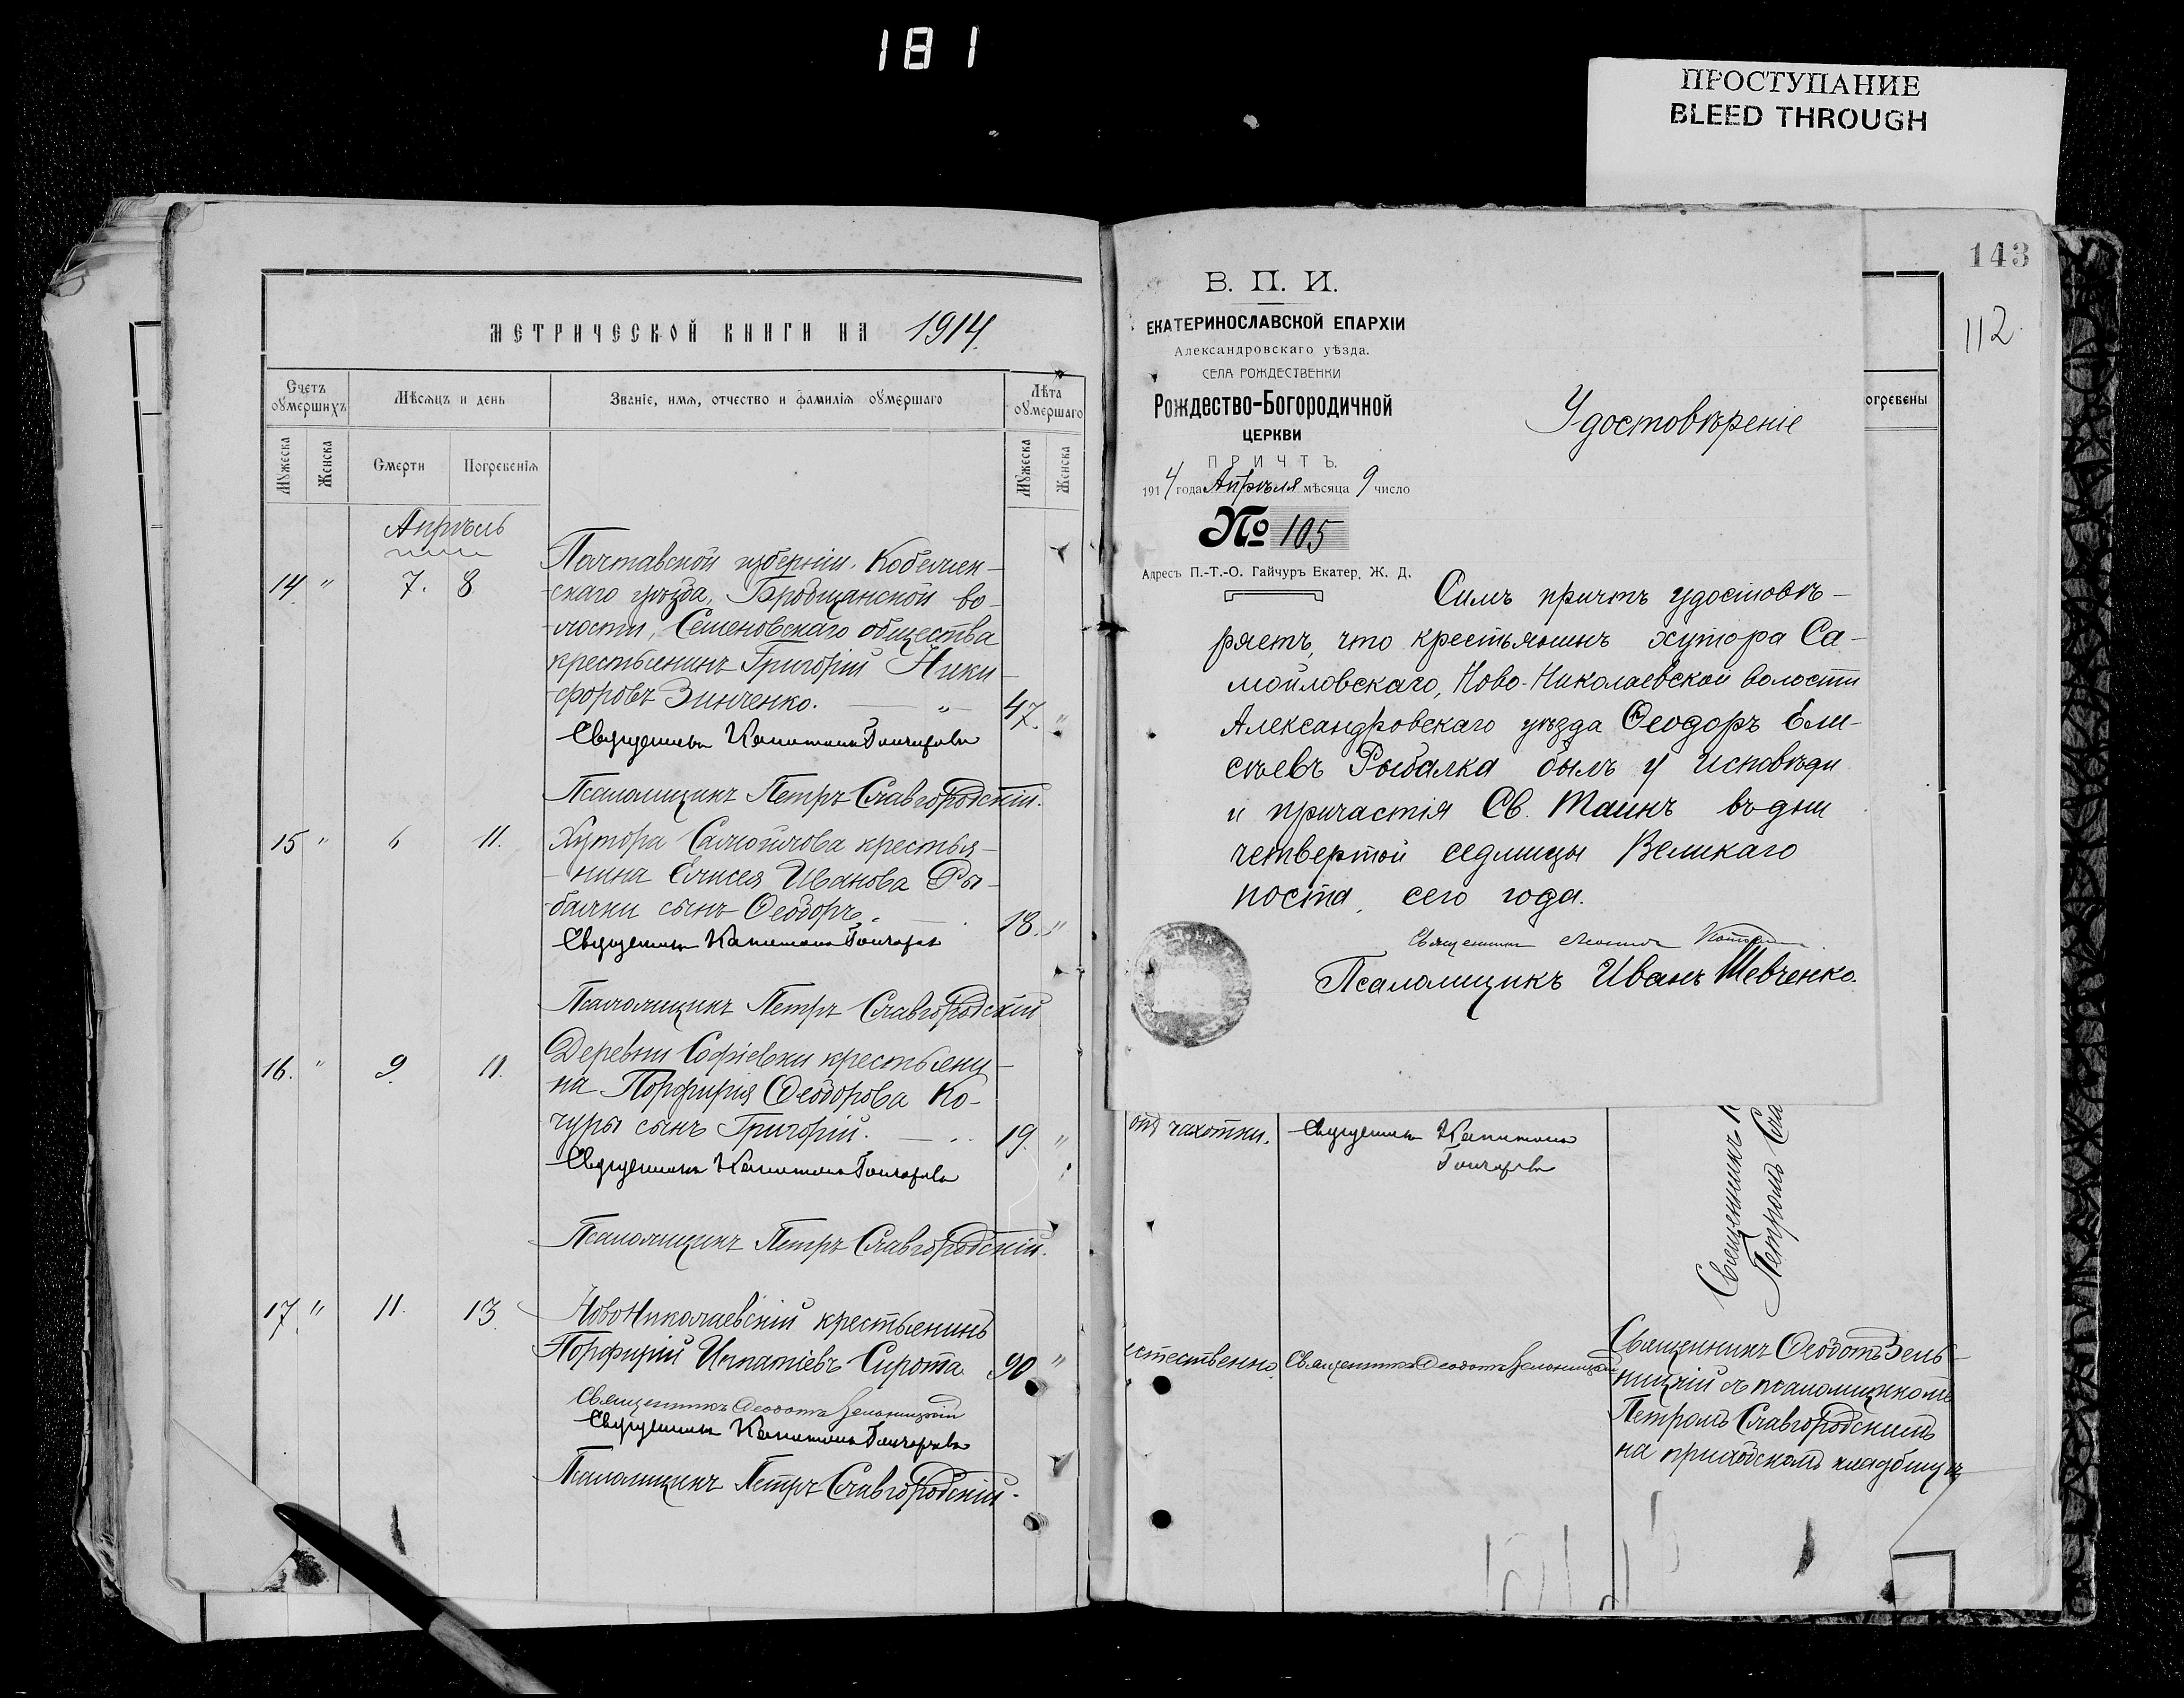 181
ПРОСТУПАНИЕ
BLEED THROUGH
МЕТРИЧЕСКОЙ КНИГИ НА 1914.
Счетъ умершихъ
Мѣсяцъ и день
Званіе, имя, отчество и фамилія умершаго
Лѣта умершаго
Мужеска
Женска
Смерти
Погребенія
Мужеска
Женска
Апрѣль
14. " 7. 8
Полтавской губерніи, Кобеляк-
скаго уѣзда, Бродщанской во-
лости, Семеновскаго общества
крестьянинъ Григорій Ники-
форовъ Зинченко. — " — 47. "
Священникъ Капитонъ Гончаровъ
Псаломщикъ Петръ Славгородскій.
15 " 6 11.
Хутора Самойлова крестья-
нина Елисея Иванова Ры-
балки сынъ Ѳеодоръ. — 18. "
Священникъ Капитонъ Гончаровъ
Псаломщикъ Петръ Славгородскій
16. " 9. 11.
Деревни Софіевки крестьяни-
на Порфирія Ѳеодорова Ко-
чуры сынъ Григорій. — 19. "
Священникъ Капитонъ Гончаровъ
Псаломщикъ Петръ Славгородскій.
17. " 11. 13
НовоНиколаевскій крестьянинъ
Порфирій Игнатіевъ Сирота 90 "
Священникъ Ѳеодотъ Зельницкій
Священникъ Капитонъ Гончаровъ
Псаломщикъ Петръ Славгородскій.
143
112.
огребены
В. П. И.
ЕКАТЕРИНОСЛАВСКОЙ ЕПАРХІИ
Александровскаго уѣзда.
СЕЛА РОЖДЕСТВЕНКИ
Рождество-Богородичной
ЦЕРКВИ
ПРИЧТЪ.
1914 года Апрѣля мѣсяца 9 число
№ 105
Адресъ П.-Т.-О. Гайчуръ Екатер. Ж. Д.
Удостовѣреніе
Симъ причтъ удостовѣ-
ряетъ, что крестьянинъ хутора Са-
мойловскаго, Ново-Николаевской волости
Александровскаго уѣзда Ѳеодоръ Ели-
сѣевъ Рыбалка былъ у исповѣди
и причастія Св. Таинъ въ дни
четвертой седмицы Великаго
поста, сего года.
Священникъ
Псаломщикъ Иванъ Шевченко.
отъ чахотки.
Священникъ Капитонъ
Гончаровъ
Священникъ К
Петромъ Сла
стественно.
Священникъ Ѳеодотъ Зельницкій
Священникъ Ѳеодотъ Зель-
ницкій съ псаломщикомъ
Петромъ Славгородскимъ
на приходскомъ кладбищѣ